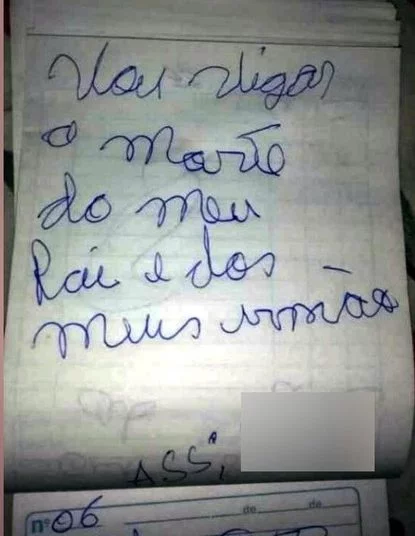 Vou vigar
a morte
do meu
Pai e dos
meus irmão
ASS,
nº 06
de de